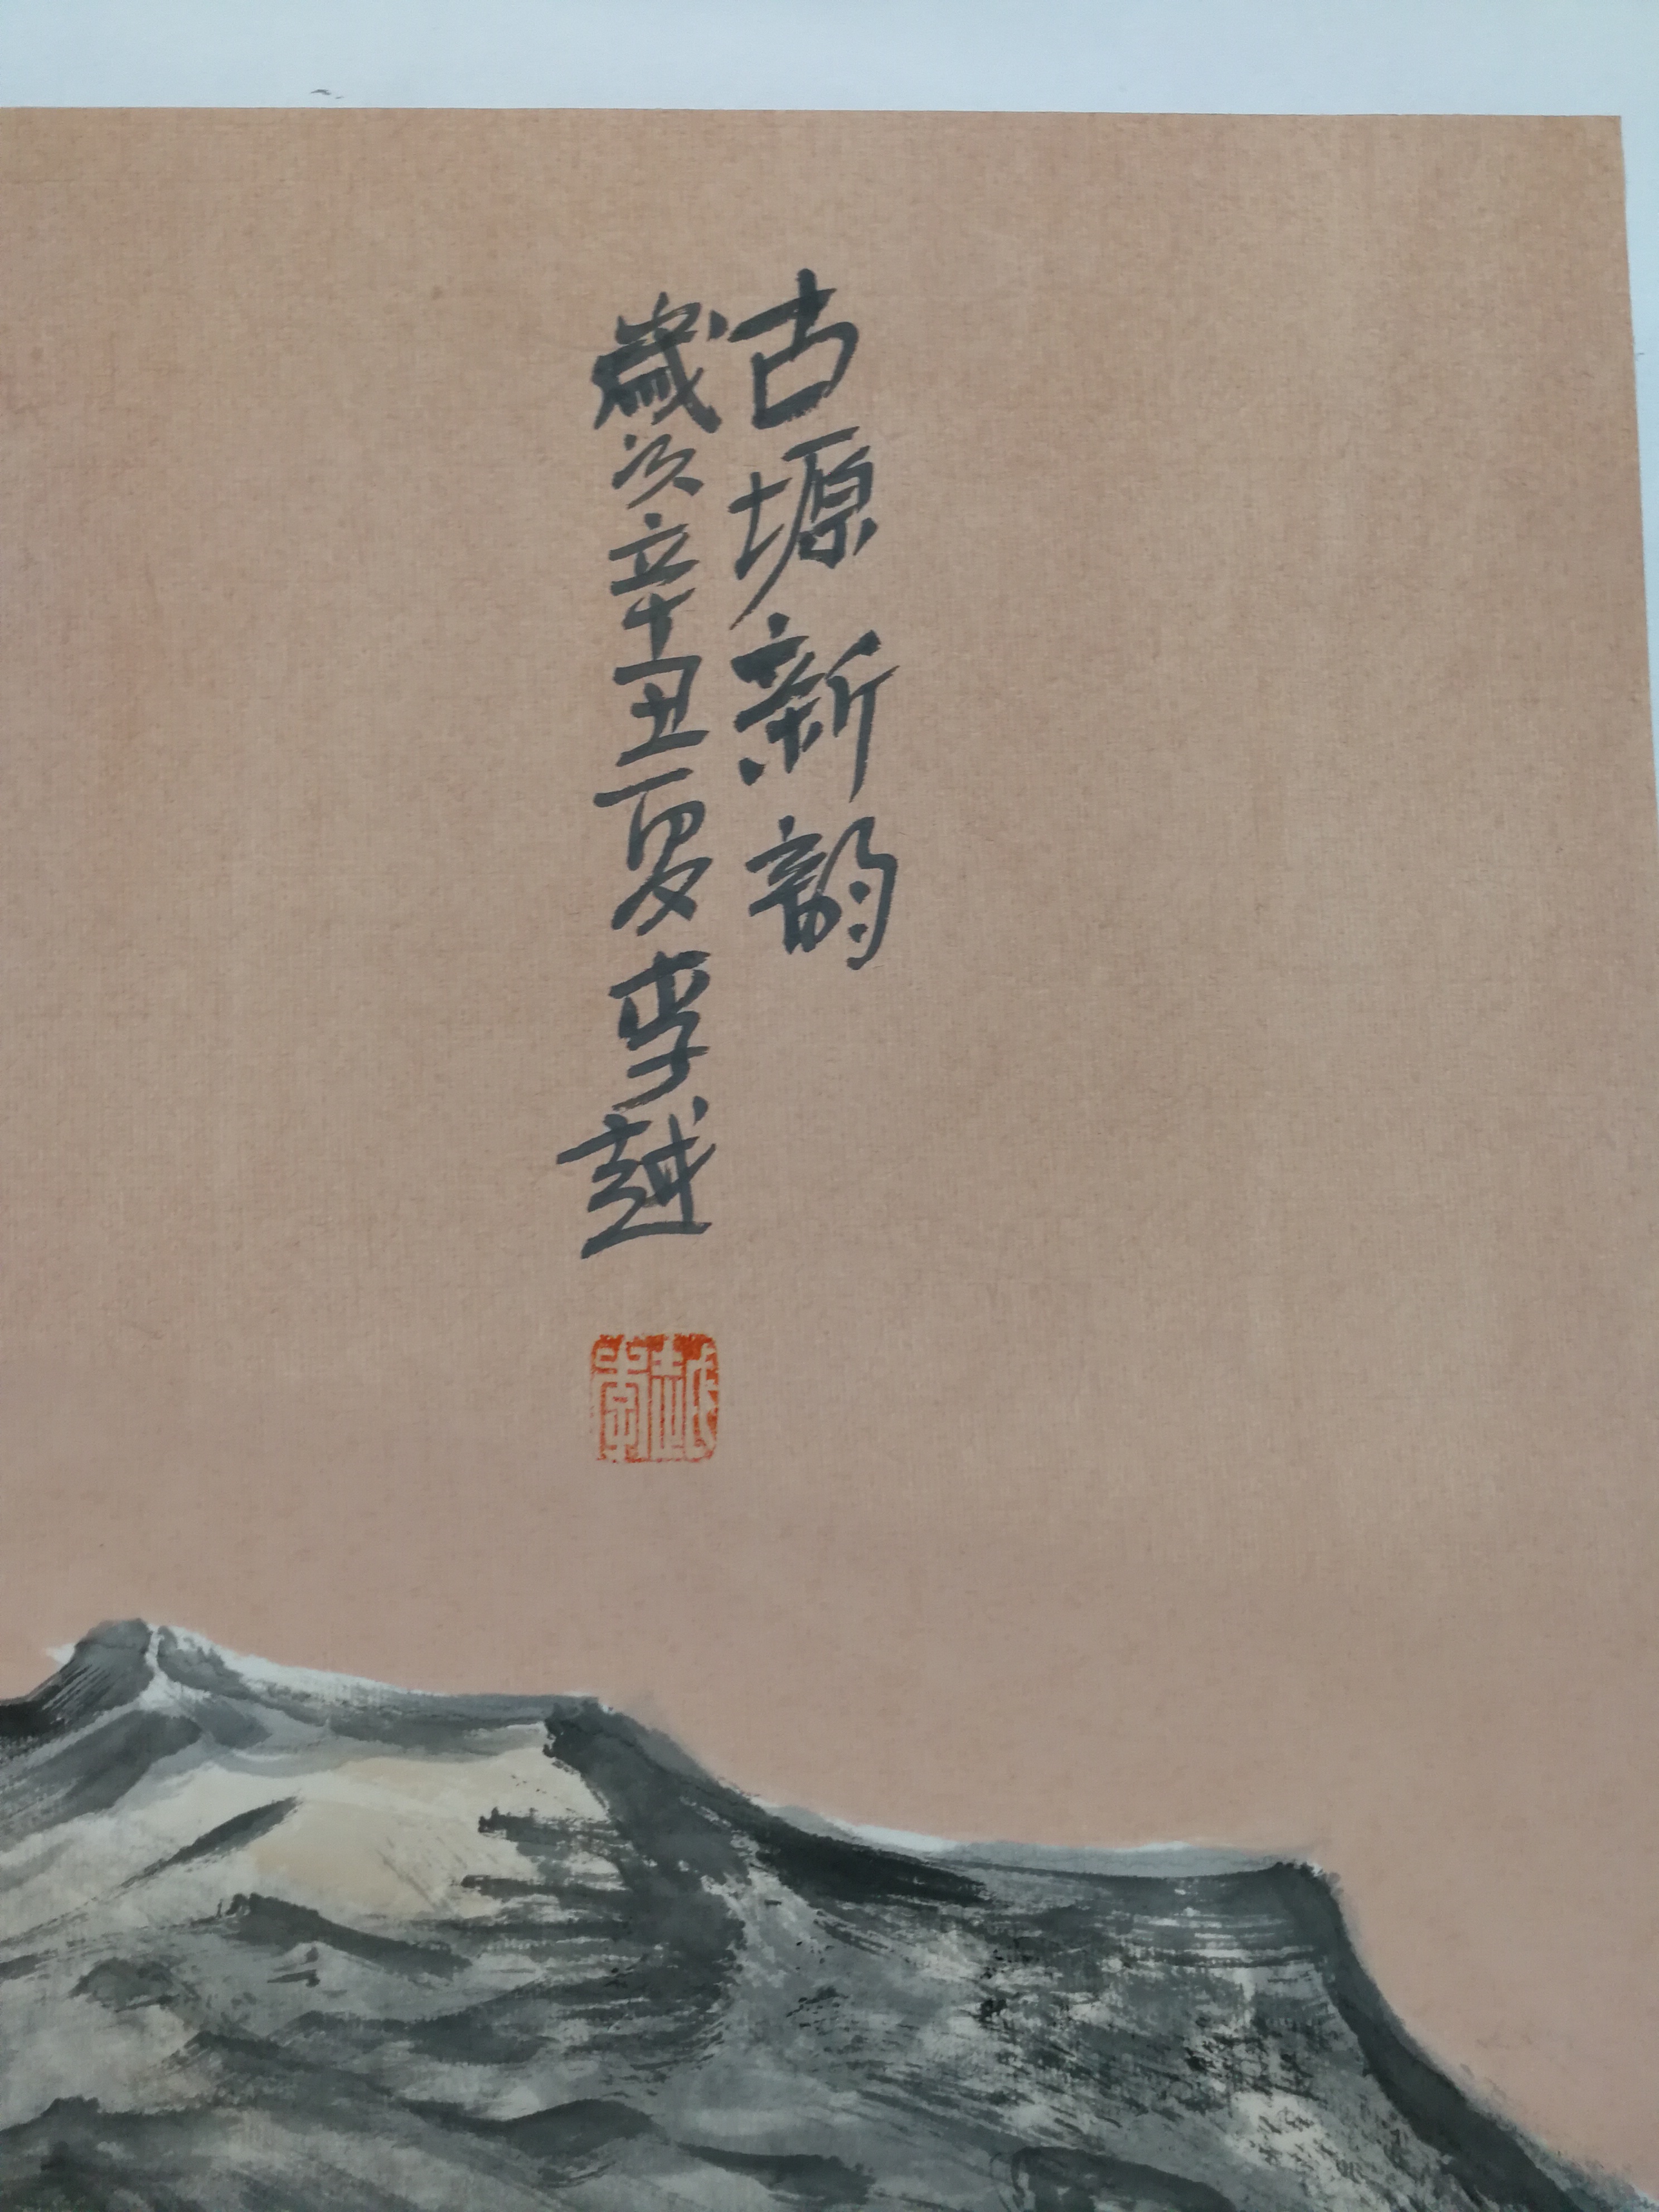 古塬新韵
歲次辛丑夏李越
李越